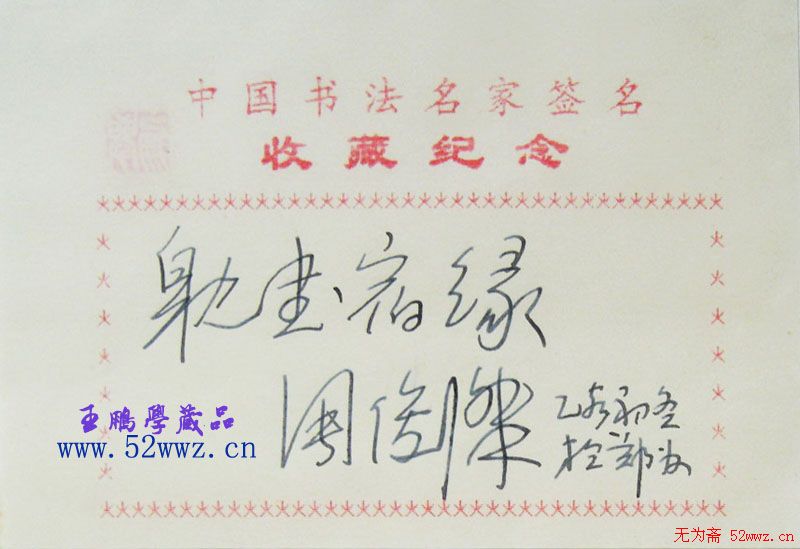 中国书法名家签名
收藏纪念
躭書宿缘
周俊傑
乙酉初冬
於郑州
王鵬學藏品
www.52wwz.cn
无为斋 52wwz.cn